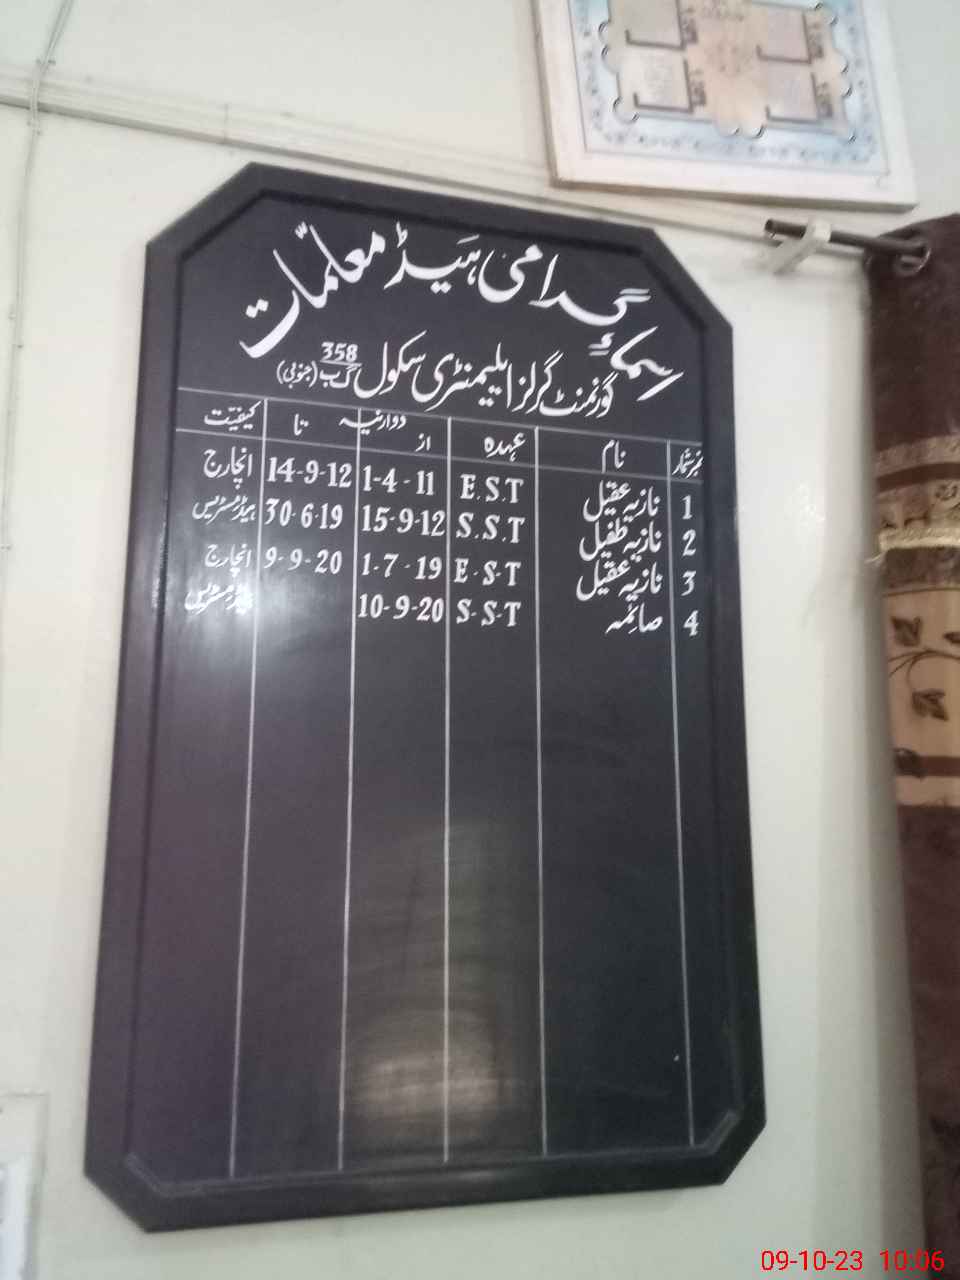 اسمائے گرامی ہیڈ معلمّات
گورنمنٹ گرلز ایلیمنٹری سکول 358 گ ب (جنوبی)
نمبر شمار نام عہدہ دورانیہ کیفیّت
از تا
1 نازیہ عقیل E.S.T 1-4-11 14-9-12 انچارج
2 نازیہ طفیل S.S.T 15-9-12 30-6-19 ہیڈ مسٹریس
3 نازیہ عقیل E-S-T 1-7-19 9-9-20 انچارج
4 صائمہ S-S-T 10-9-20 ہیڈ مسٹریس
09-10-23 10:06